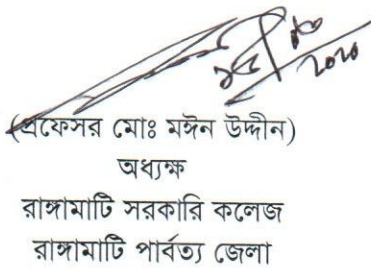 ২০২০
(প্রফেসর মোঃ মঈন উদ্দীন)
অধ্যক্ষ
রাঙ্গামাটি সরকারি কলেজ
রাঙ্গামাটি পার্বত্য জেলা